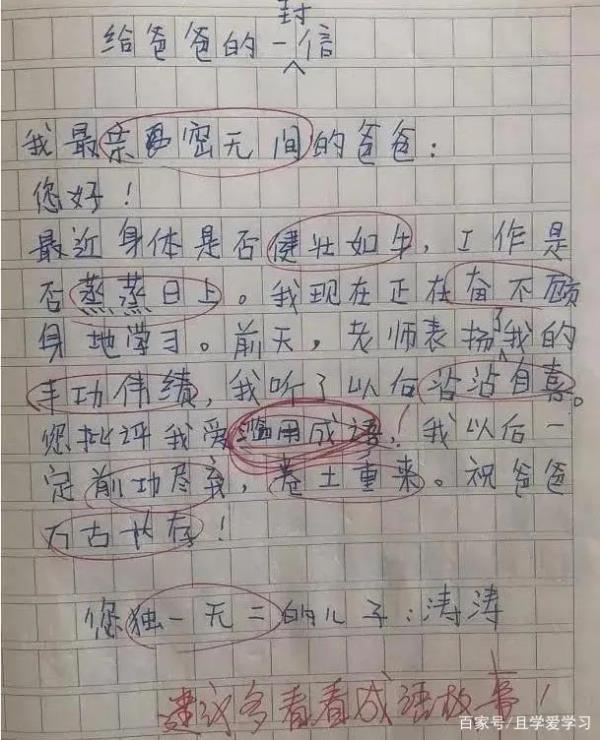 给爸爸的一封信
我最亲密无间的爸爸：
您好！
最近身体是否健壮如牛，工作是
否蒸蒸日上。我现在正在奋不顾
身地学习。前天，老师表扬了我的
丰功伟绩，我听了以后沾沾自喜。
您批评我爱滥用成语！我以后一
定前功尽弃，卷土重来。祝爸爸
万古长存！
您独一无二的儿子：涛涛
建议多看看成语故事！
百家号/且学爱学习